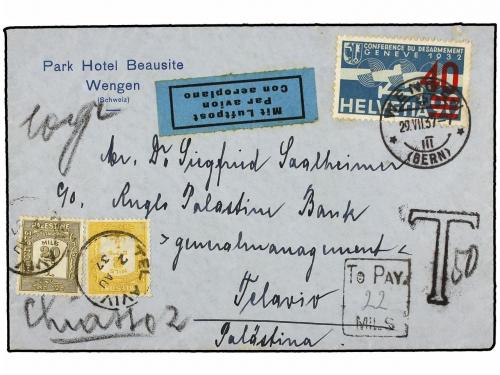 Park Hotel Beausite
Wengen
(Schweiz)
Mit Luftpost
Par avion
Con aeroplano
CONFERENCE DU DESARMEMENT
GENEVE 1932
40
HELVETIA
29.VII.37
III
(BERN)
Mr. Dr. Siegfried Saalheimer
c/o. Anglo Palestine Bank
>generalmanagement<
Telaviv
Palästina.
T 50
TO PAY
22
MILS
PALESTINE
MILS
TEL AVIV
2 AU
37
Chiasso 2